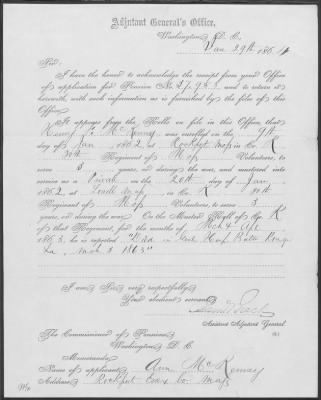 Adjutant General's Office,
Washington, D. C.
Jan 29th 1864
Sir:
I have the honor to acknowledge the receipt from your Office
of application for Pension No. 27,951, and to return it
herewith, with such information as is furnished by the files of this
Office.
It appears from the Rolls on file in this Office, that
Henry Mc Kenny was enrolled on the 9th
day of Jan, 1862, at Rockport Mass in Co. K
30th Regiment of Mass Volunteers, to
serve 3 years, or during the war, and mustered into
service as a Private on the 20th day of Jan,
1862, at Lowell Mass, in Co. K 30th
Regiment of Mass Volunteers, to serve 3
years, or during the war. On the Muster Roll of Co. K
of that Regiment, for the months of Mch & Apr,
1863, he is reported "Died in Genl Hosp Baton Rouge
La. Mch 3 1863"
I am, Sir, very respectfully,
Your obedient servant,
Assistant Adjutant General.
The Commissioner of Pensions,
Washington, D. C.
Memoranda:
Name of applicant, Ann Mc Kenney
Address, Rockport Essex Co. Mass